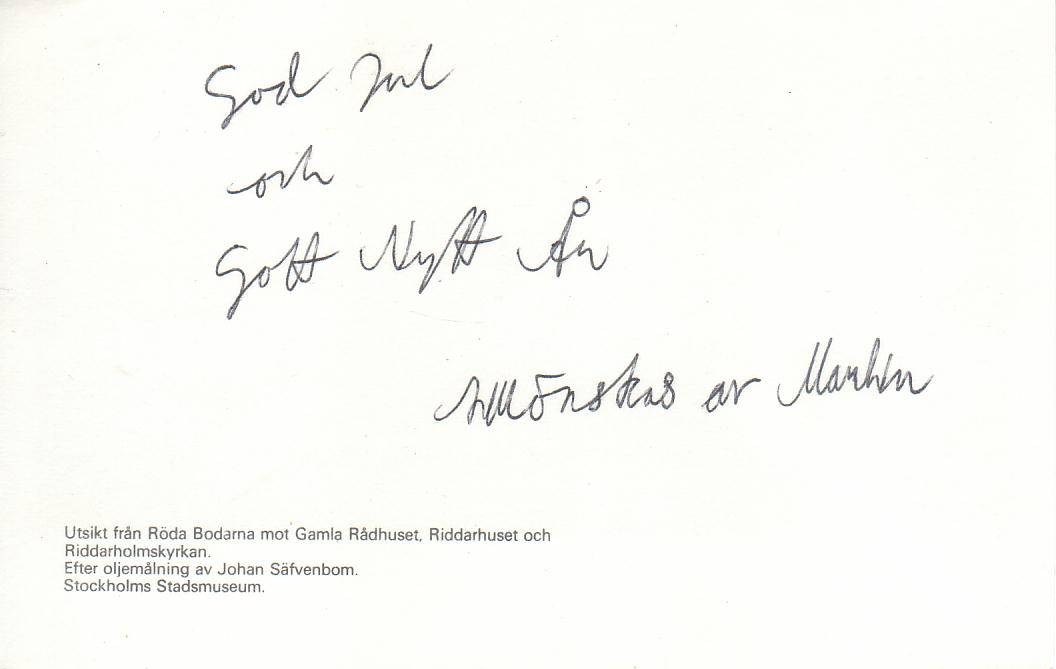 God Jul
och
Gott Nytt År
tillönskas av Martin
Utsikt från Röda Bodarna mot Gamla Rådhuset, Riddarhuset och
Riddarholmskyrkan.
Efter oljemålning av Johan Säfvenbom.
Stockholms Stadsmuseum.